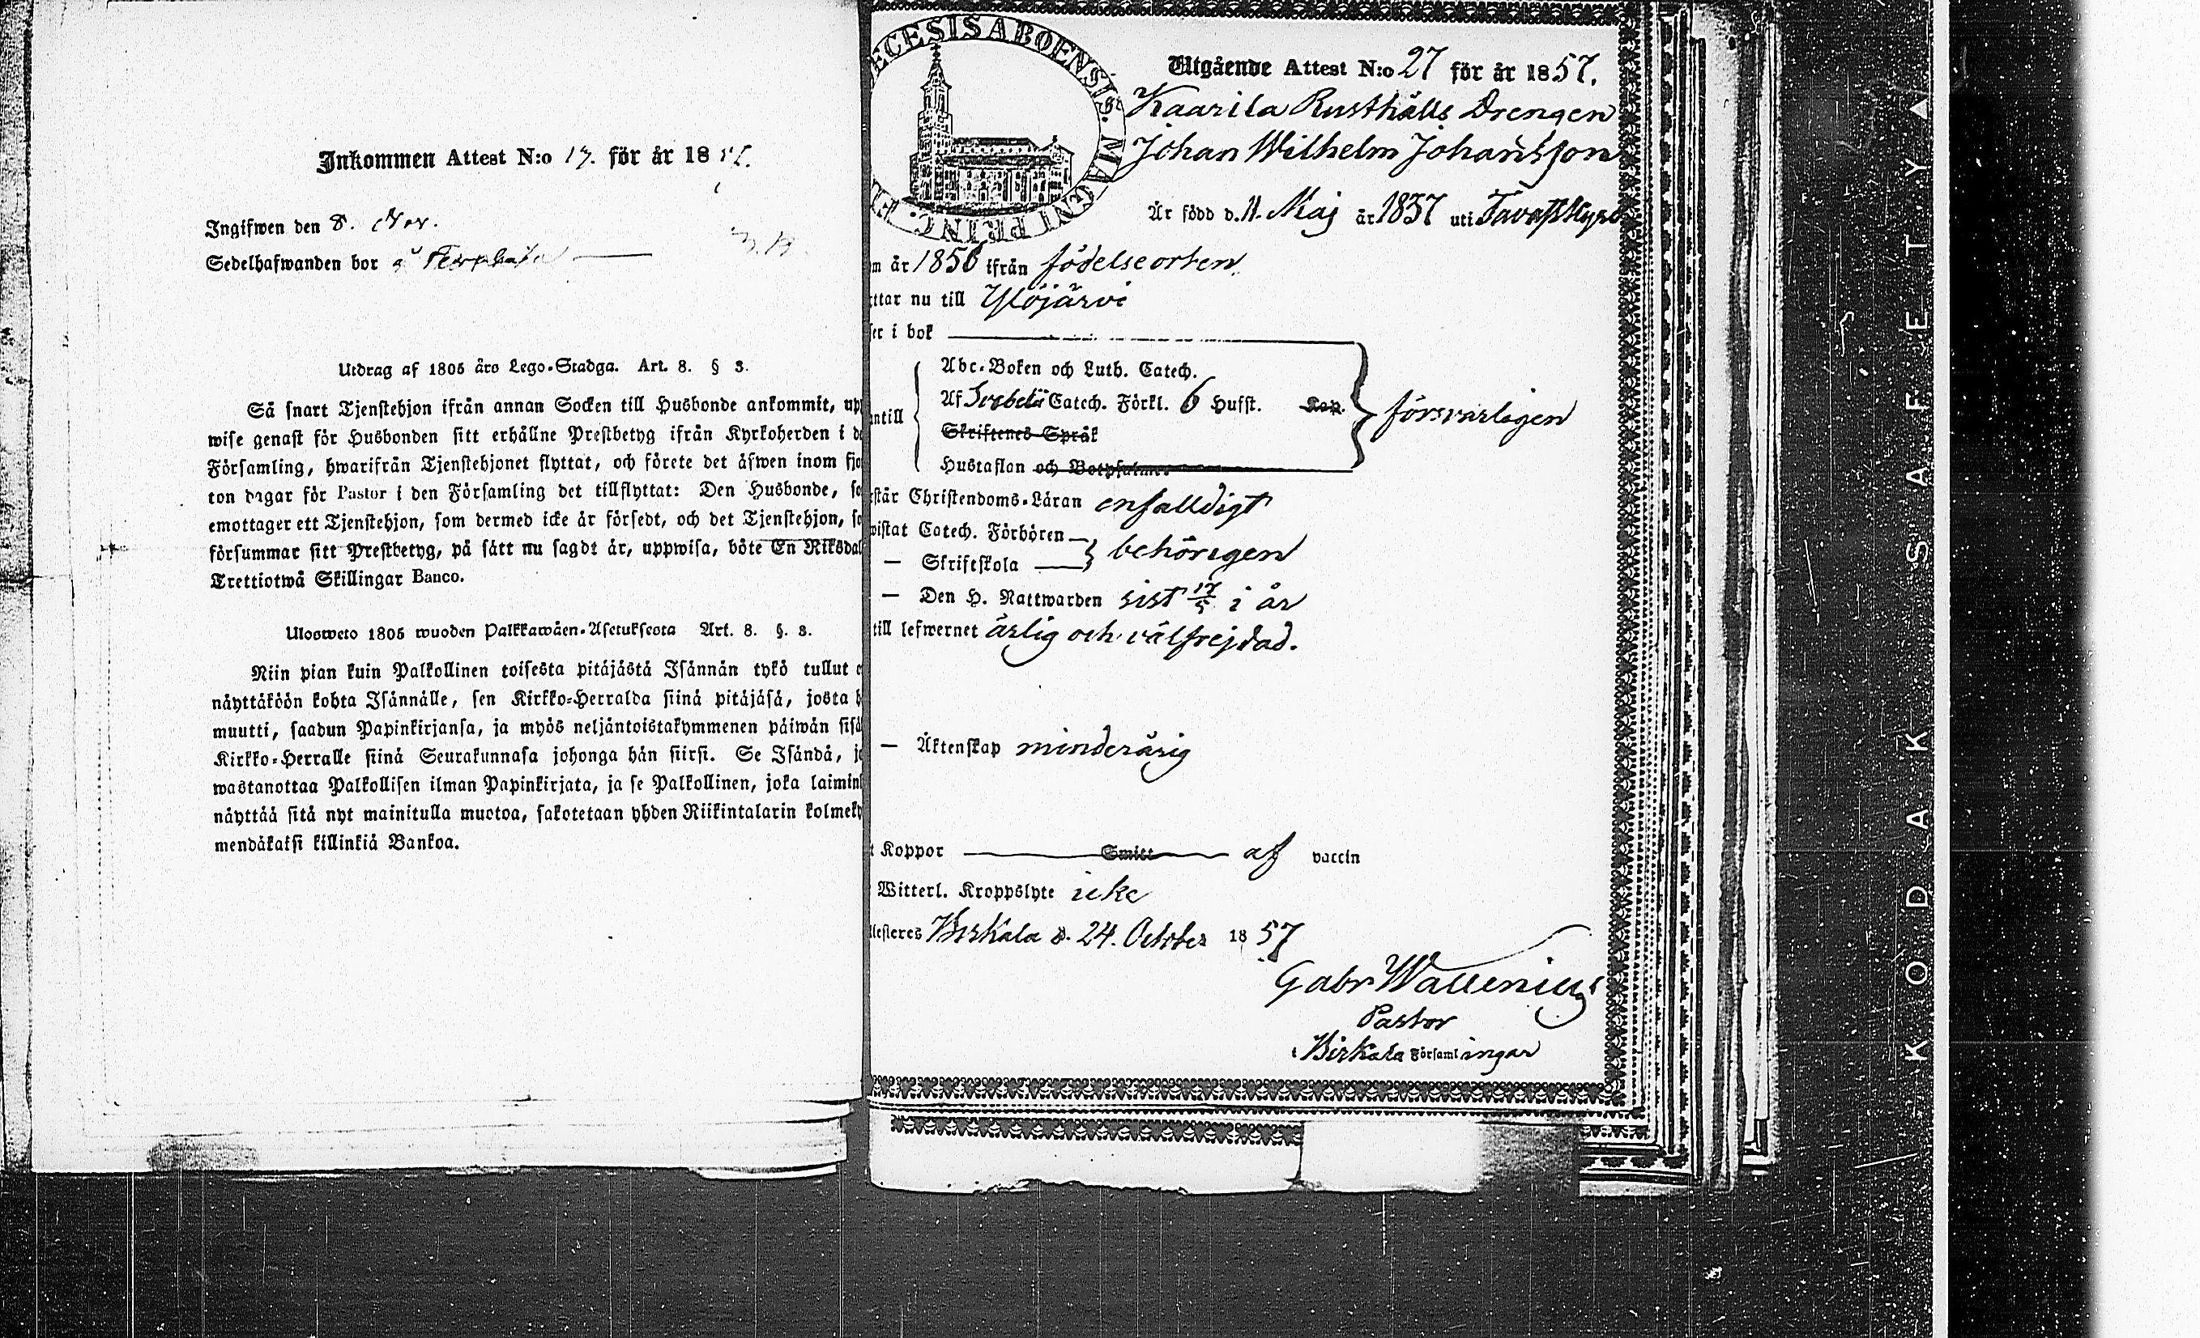 Inkommen Attest N:o 17. för år 18
Ingifwen den 8. Nov.
Sedelhafwanden bor å
Utdrag af 1805 års Lego-Stadga. Art. 8. § 3.
Så snart Tjenstehjon ifrån annan Socken till Husbonde ankommit, upp
wise genast för Husbonden sitt erhållne Prestbetyg ifrån Kyrkoherden i d
Församling, hwarifrån Tjenstehjonet flyttat, och förete det äfwen inom fjo
ton dagar för Pastor i den Församling det tillflyttat: Den Husbonde, so
emottager ett Tjenstehjon, som dermed icke är försedt, och det Tjenstehjon, so
försummar sitt Prestbetyg, på sätt nu sagdt är, uppwisa, böte En Riksdal
Trettiotwå Skillingar Banco.
Ulosweto 1805 wuoden Palkkawäen-Asetuksesta Art. 8. §. 3.
Niin pian kuin Palkollinen toisesta pitäjästä Isännän tykö tullut o
näyttäköön kohta Isännälle, sen Kirkko-Herralda siinä pitäjäsä, josta h
muutti, saadun Papinkirjansa, ja myös neljäntoistakymmenen päiwän sisä
Kirkko-Herralle siinä Seurakunnasa johonga hän siirsi. Se Isändä, jo
wastanottaa Palkollisen ilman Papinkirjata, ja se Palkollinen, joka laimin
näyttää sitä nyt mainitulla muotoa, sakotetaan yhden Riikintalarin kolmeky
mendäkaksi killinkiä Bankoa.
ECESIS ABOENSIS. MAGNI PRINC. FI
Utgående Attest N:o 27 för år 1857.
Kaarila Rusthålls Drengen
Johan Wilhelm Johansson
Är född d. 11. Maj år 1837 uti Tavastkyro
m år 1856 ifrån födelseorten
ttar nu till Ylöjärvi
ser i bok
Abc-Boken och Luth. Catech.
ntill Af Svebelii Catech. Förkl. 6 Hufst. Kap. försvarligen
Skriftenes Språk
Hustaflan och Botpsalmer
står Christendoms-Läran enfalldigt
wistat Catech. Förhören
behörigen
— Skriftskola
— Den H. Nattwarden sist 17/5 i år
till lefwernet ärlig och välfrejdad.
— Äktenskap minderårig
t Koppor Smitt af vaccin
Witterl. Kroppslyte icke
ttesteres Birkala d. 24. October 1857
Gabr Wallenius
Pastor
i Birkala Församlingar
KODAK SAFETY ▲